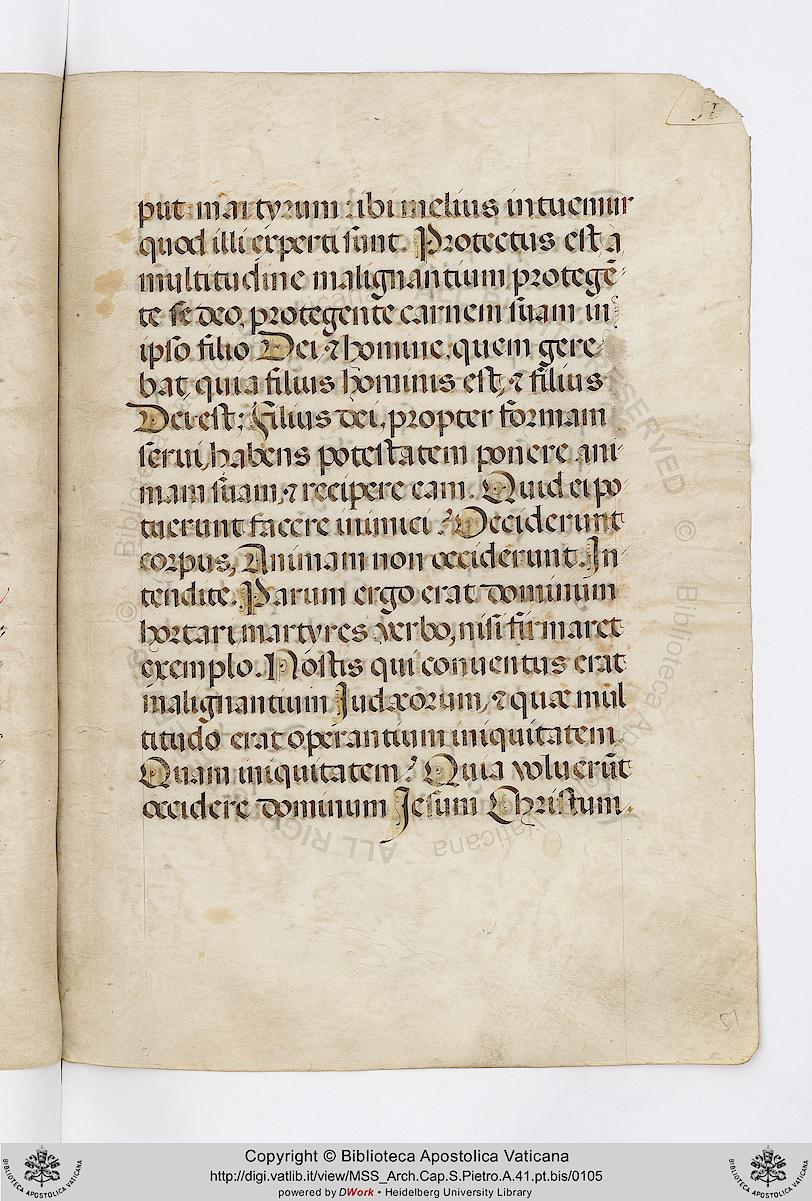 51
put martyrum ibi melius intuemur
quod illi experti sunt. Protectus est a
multitudine malignantium protegē-
te se deo, protegente carnem suam in
ipso filio Dei ⁊ homine, quem gere
bat quia filius hominis est, ⁊ filius
Dei est; filius dei, propter formam
serui, habens potestatem ponere ani-
mam suam, ⁊ recipere eam. Quid ei po
tuerunt facere inimici? Occiderunt
corpus, Animam non occiderunt. In-
tendite. Parum ergo erat dominum
hortari martyres verbo, nisi firmaret
exemplo. Nostis qui conuentus erat
malignantium Judæorum, ⁊ quæ mul
titudo erat operantium iniquitatem
Quam iniquitatem? Quia voluerūt
occidere dominum Jesum Christum.
51
Copyright © Biblioteca Apostolica Vaticana
http://digi.vatlib.it/view/MSS_Arch.Cap.S.Pietro.A.41.pt.bis/0105
powered by DWork • Heidelberg University Library